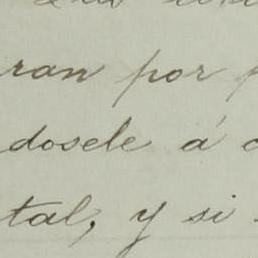 ran por
dosele á
tal, y si